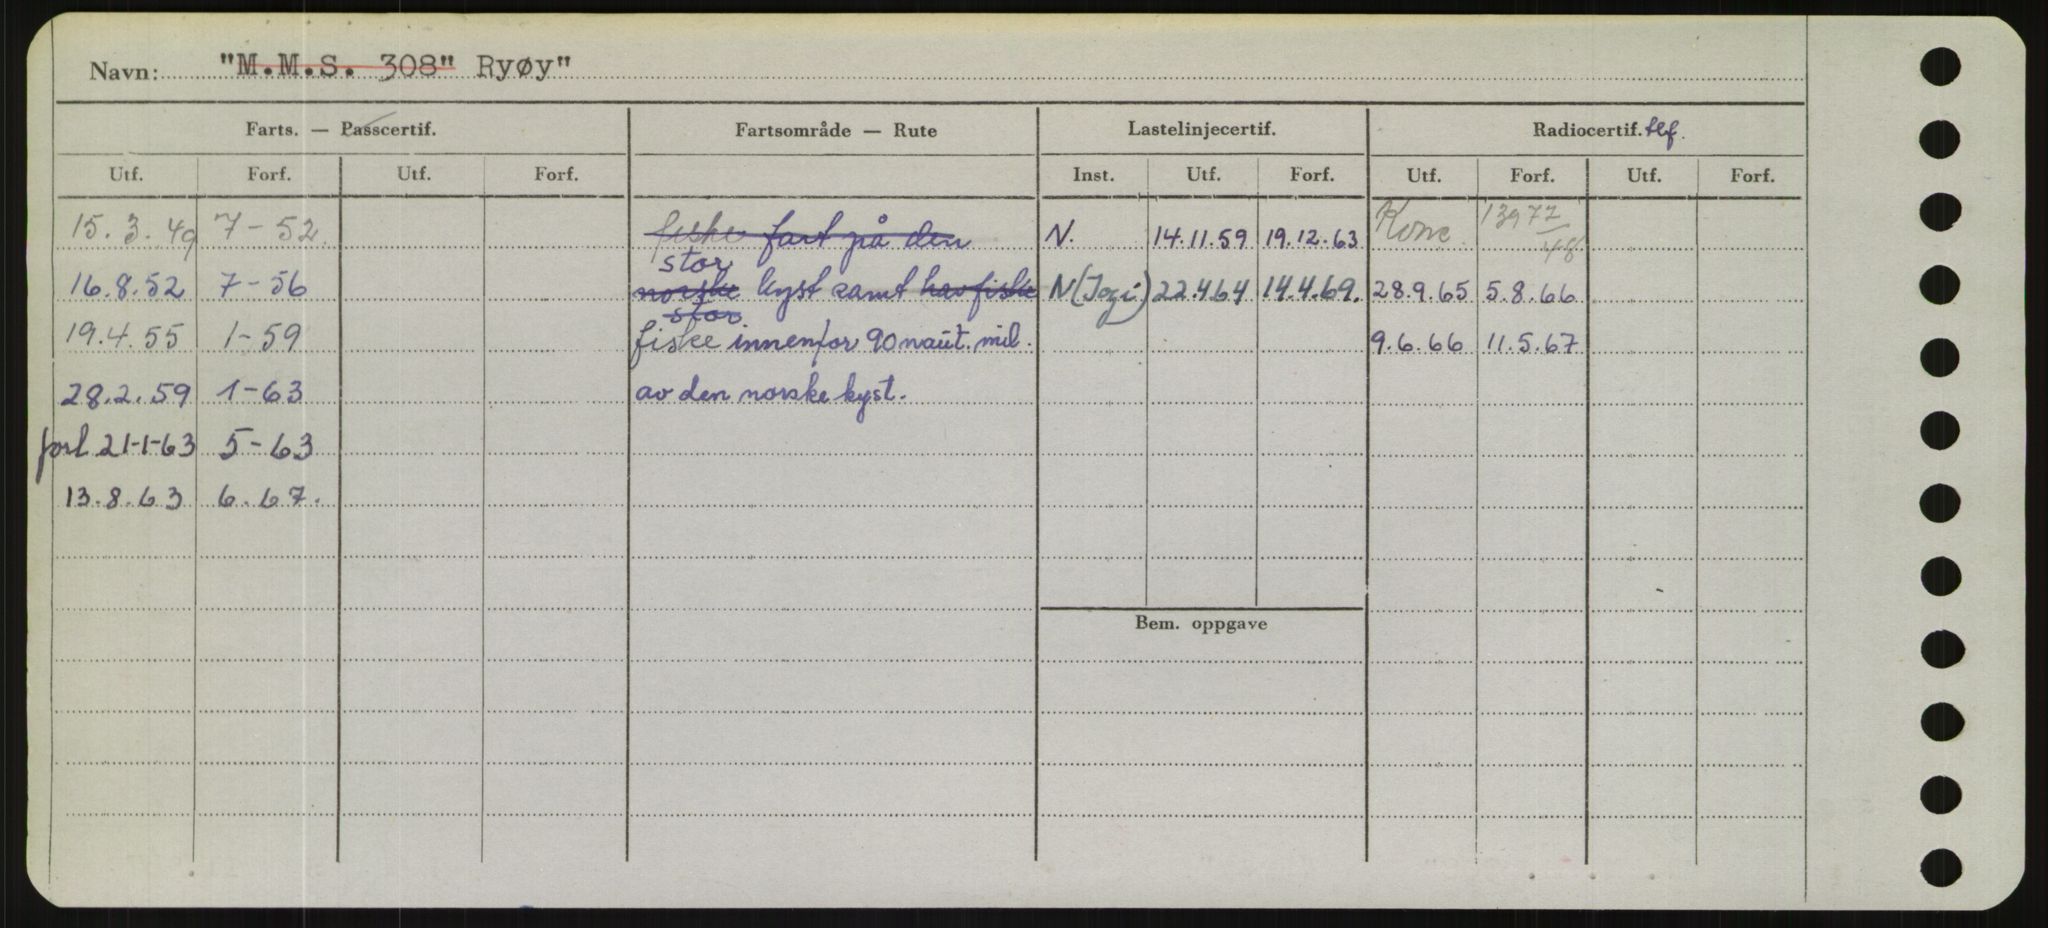 Navn: "M.M.S. 308" Ryøy"
Farts. — Passcertif. Fartsområde — Rute Lastelinjecertif. Radiocertif. tlf.
Utf. Forf. Utf. Forf. Inst. Utf. Forf. Utf. Forf. Utf. Forf.
15.3.49 7-52. fiske fart på den N. 14.11.59 19.12.63 Konc. 13977/48
stor
16.8.52 7-56 norske kyst samt havfiske N 22.4.64 14.4.69. 28.9.65 5.8.66
stor
19.4.55 1-59 fiske innenfor 90 naut. mil. 9.6.66 11.5.67
28.2.59 1-63 av den norske kyst.
forl 21-1-63 5-63
13.8.63 6.67.
Bem. oppgave